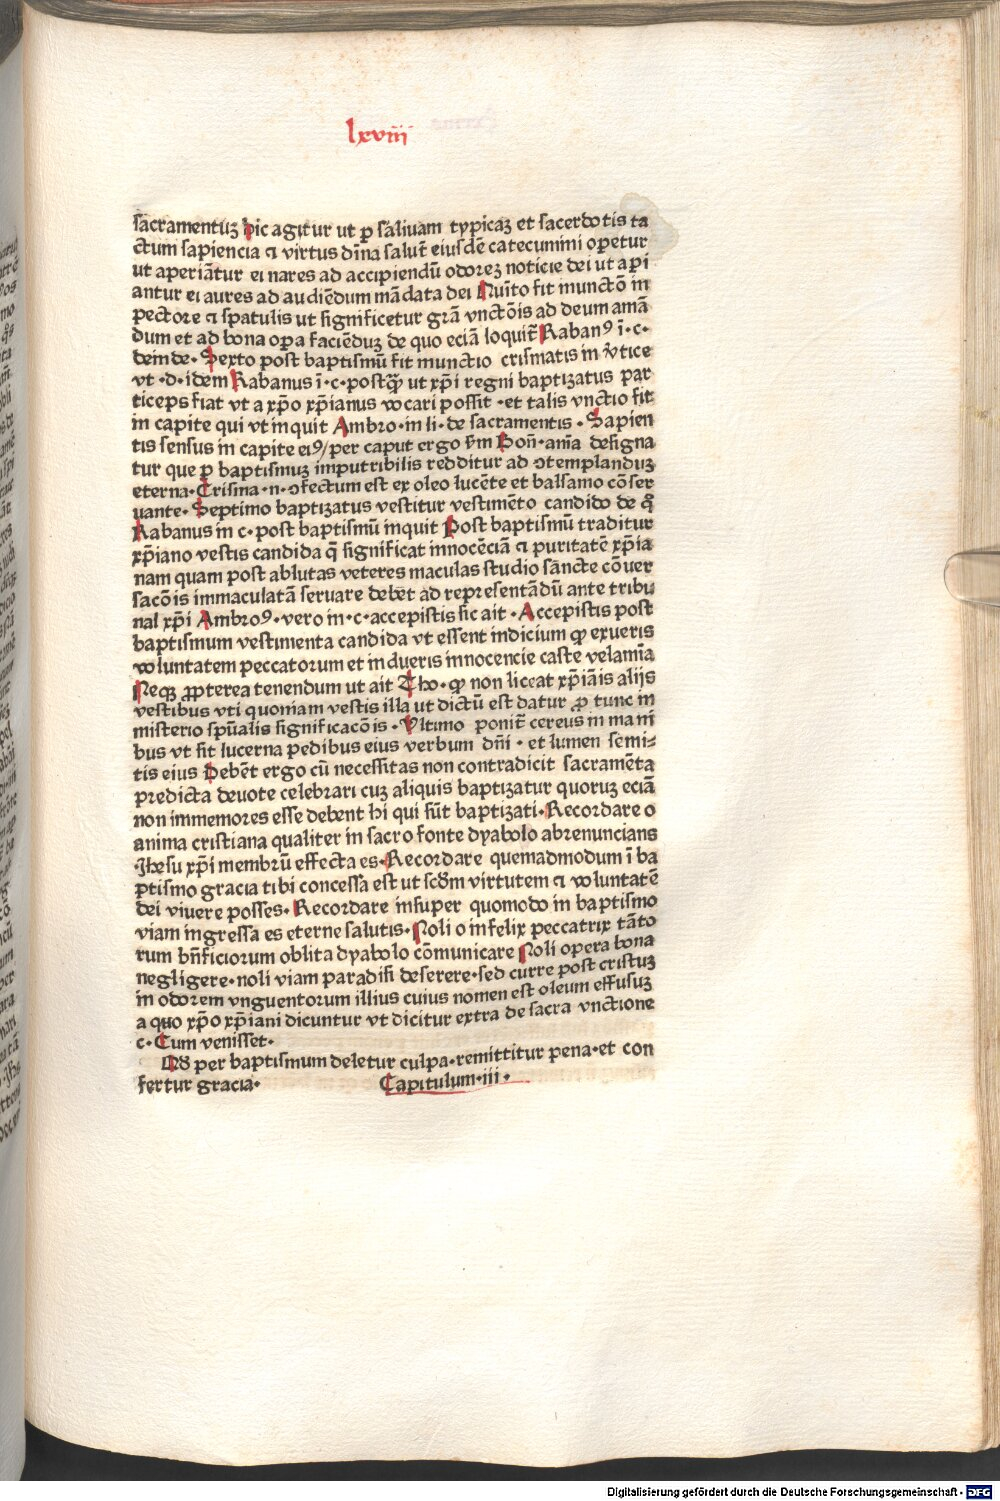 lxviii
sacramentuꝫ hic agitur ut ꝑ saliuam typicaꝫ et sacerdotis ta
ctum sapiencia ⁊ virtus dīna salutē eiusdē catecumini opetur
ut aperiātur ei nares ad accipiendū odoreꝫ noticie dei ut api
antur ei aures ad audiēdum mādata dei Quīto fit munctō in
pectore ⁊ spatulis ut significetur grā vnctōis ad deum amā
dum et ad bona opa faciēduꝫ de quo eciā loquit̄ Rabanꝰ ī·c·
deinde· Sexto post baptismū fit munctio crismatis in v̄tice
vt ·d·idem Rabanus ī·c·postꝙ̄ ut xp̄i regni baptizatus par
ticeps fiat vt a xp̄o xp̄ianus vocari possit ·et talis vnctio fit
in capite qui vt inquit Ambro·in li·de sacramentis · Sapien
tis sensus in capite eiꝰ/per caput ergo s̄m Bon̄·aīa designa
tur que ꝑ baptismuꝫ imputribilis redditur ad ɔtemplanduꝫ
eterna·Crisma·n·ɔfectum est ex oleo lucēte et balsamo cōser
uante· Septimo baptizatus vestitur vestimēto candido de q̄
Rabanus in c·post baptismū inquit Post baptismū traditur
xp̄iano vestis candida q̄ significat innocēciā ⁊ puritatē xp̄ia
nam quam post ablutas veteres maculas studio sancte cōuer
sacōis immaculatā seruare debet ad representādū ante tribu
nal xp̄i Ambroꝰ·vero in·c·accepistis sic ait ·Accepistis post
baptismum vestimenta candida vt essent indicium ꝙ exueris
voluntatem peccatorum et indueris innocencie caste velamīa
Neqꝫ ꝓpterea tenendum ut ait Tho·ꝙ non liceat xp̄iāis alijs
vestibus vti quoniam vestis illa ut dictū est datur ꝓ tunc in
misterio spūalis significacōis · Vltimo ponit̄ cereus in mani
bus vt sit lucerna pedibus eius verbum dn̄i · et lumen semi⸗
tis eius Debēt ergo cū necessitas non contradicit sacramēta
predicta deuote celebrari cuꝫ aliquis baptizatur quoruꝫ eciā
non immemores esse debent hi qui sūt baptizati·Recordare o
anima cristiana qualiter in sacro fonte dyabolo abrenuncians
·Ihesu xp̄i membrū effecta es·Recordare quemadmodum ī ba
ptismo gracia tibi concessa est ut scd̄m virtutem ⁊ voluntatē
dei viuere posses· Recordare insuper quomodo in baptismo
viam ingressa es eterne salutis· Noli o infelix peccatrix tāto
rum bn̄ficiorum oblita dyabolo cōmunicare Noli opera bona
negligere·noli viam paradisi deserere·sed curre post cristuꝫ
in odorem vnguentorum illius cuius nomen est oleum effusuꝫ
a quo xp̄o xp̄iani dicuntur vt dicitur extra de sacra vnctione
c·Cum venisset·
Qd̄ per baptismum deletur culpa·remittitur pena·et con
fertur gracia· Capitulum·iii·
Digitalisierung gefördert durch die Deutsche Forschungsgemeinschaft - DFG